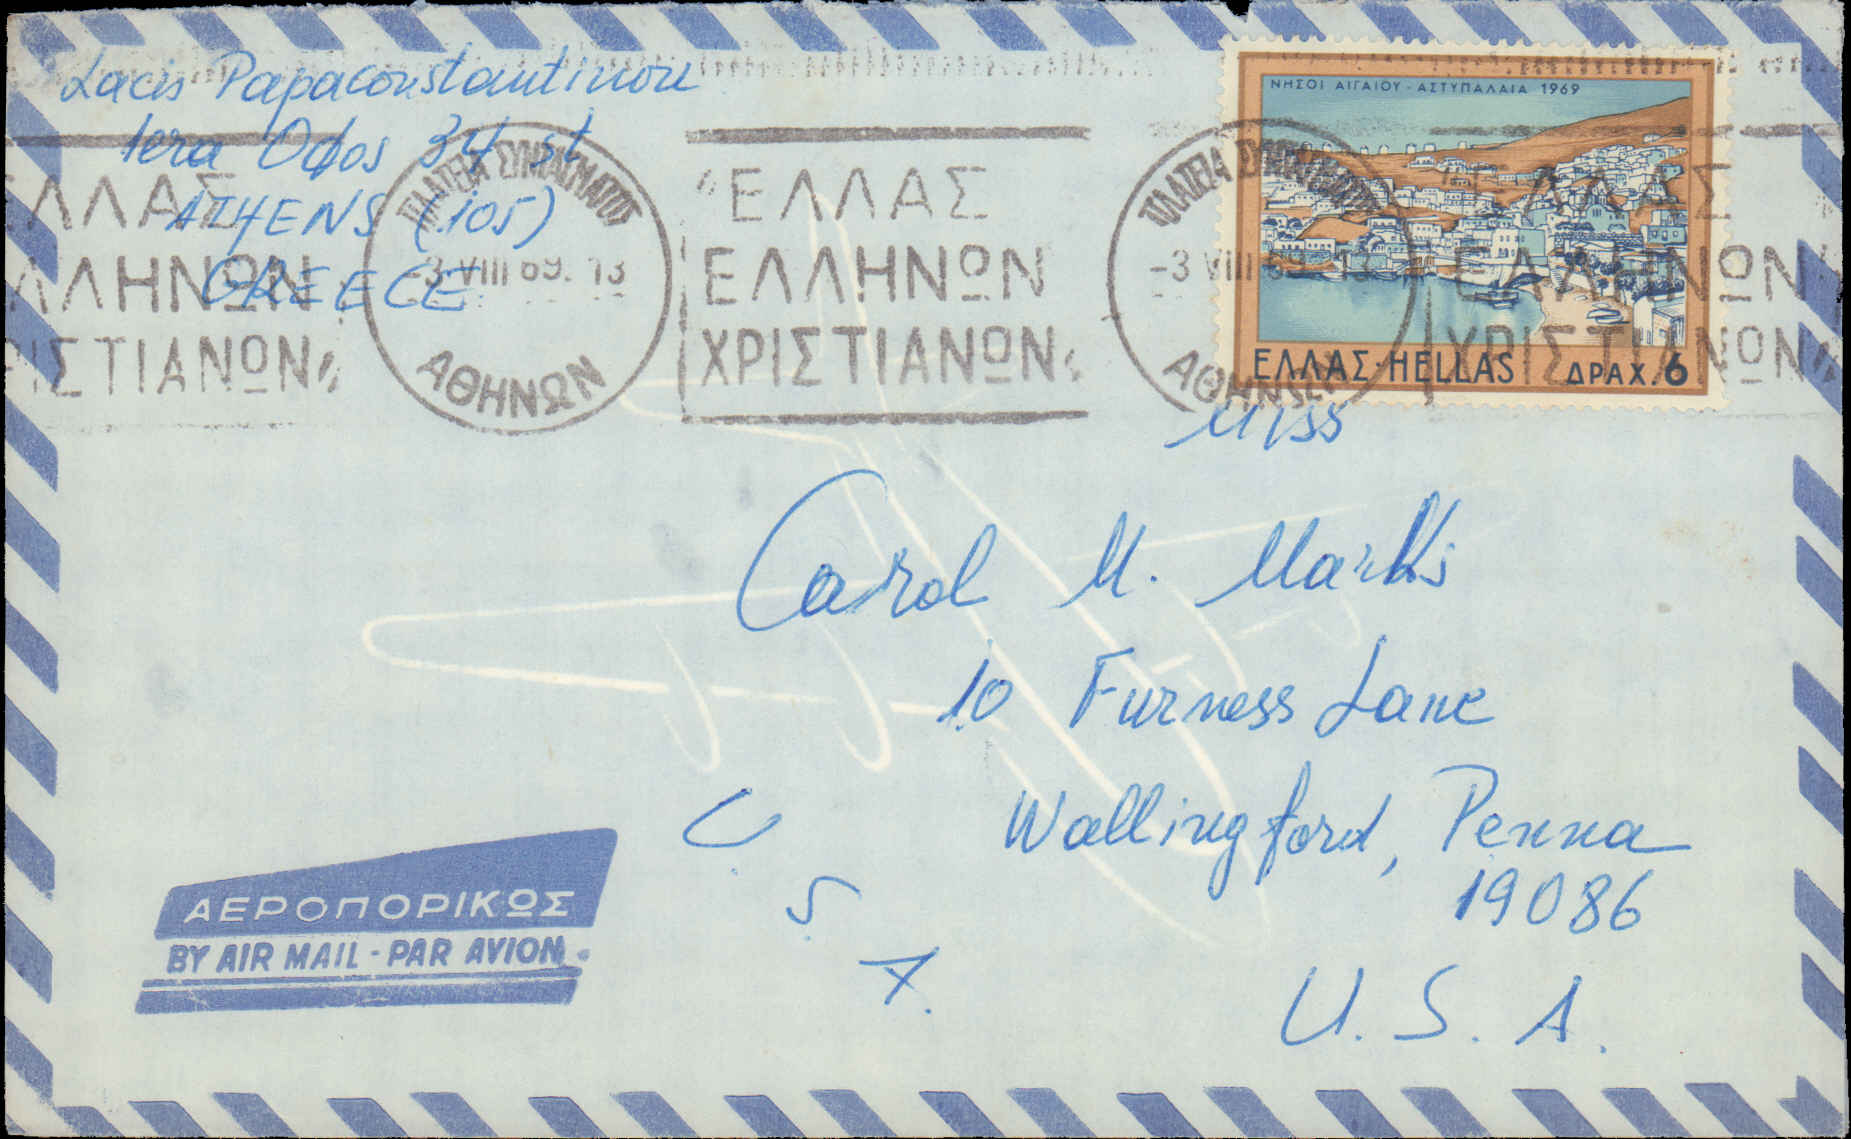 Lacis Papaconstantinou
Iera Odos 34 st
ATHENS (105)
GREECE
ΛΛΑΣ
ΛΛΗΝΩΝ
ΡΙΣΤΙΑΝΩΝ"
ΠΛΑΤΕΙΑ ΣΥΝΤΑΓΜΑΤΟΣ
-3 VIII 69. 13
ΑΘΗΝΩΝ
"ΕΛΛΑΣ
ΕΛΛΗΝΩΝ
ΧΡΙΣΤΙΑΝΩΝ"
ΠΛΑΤΕΙΑ ΣΥΝΤΑΓΜΑΤΟΣ
-3 VIII 69. 13
ΑΘΗΝΩΝ
"ΕΛΛΑΣ
ΕΛΛΗΝΩΝ
ΧΡΙΣΤΙΑΝΩΝ"
ΝΗΣΟΙ ΑΙΓΑΙΟΥ - ΑΣΤΥΠΑΛΑΙΑ 1969
ΕΛΛΑΣ-HELLAS ΔΡΑΧ. 6
Miss
Carol M. Marks
10 Furness Lane
Wallingford, Penna
19086
U.S.A.
U.
S.
A.
ΑΕΡΟΠΟΡΙΚΩΣ
BY AIR MAIL - PAR AVION